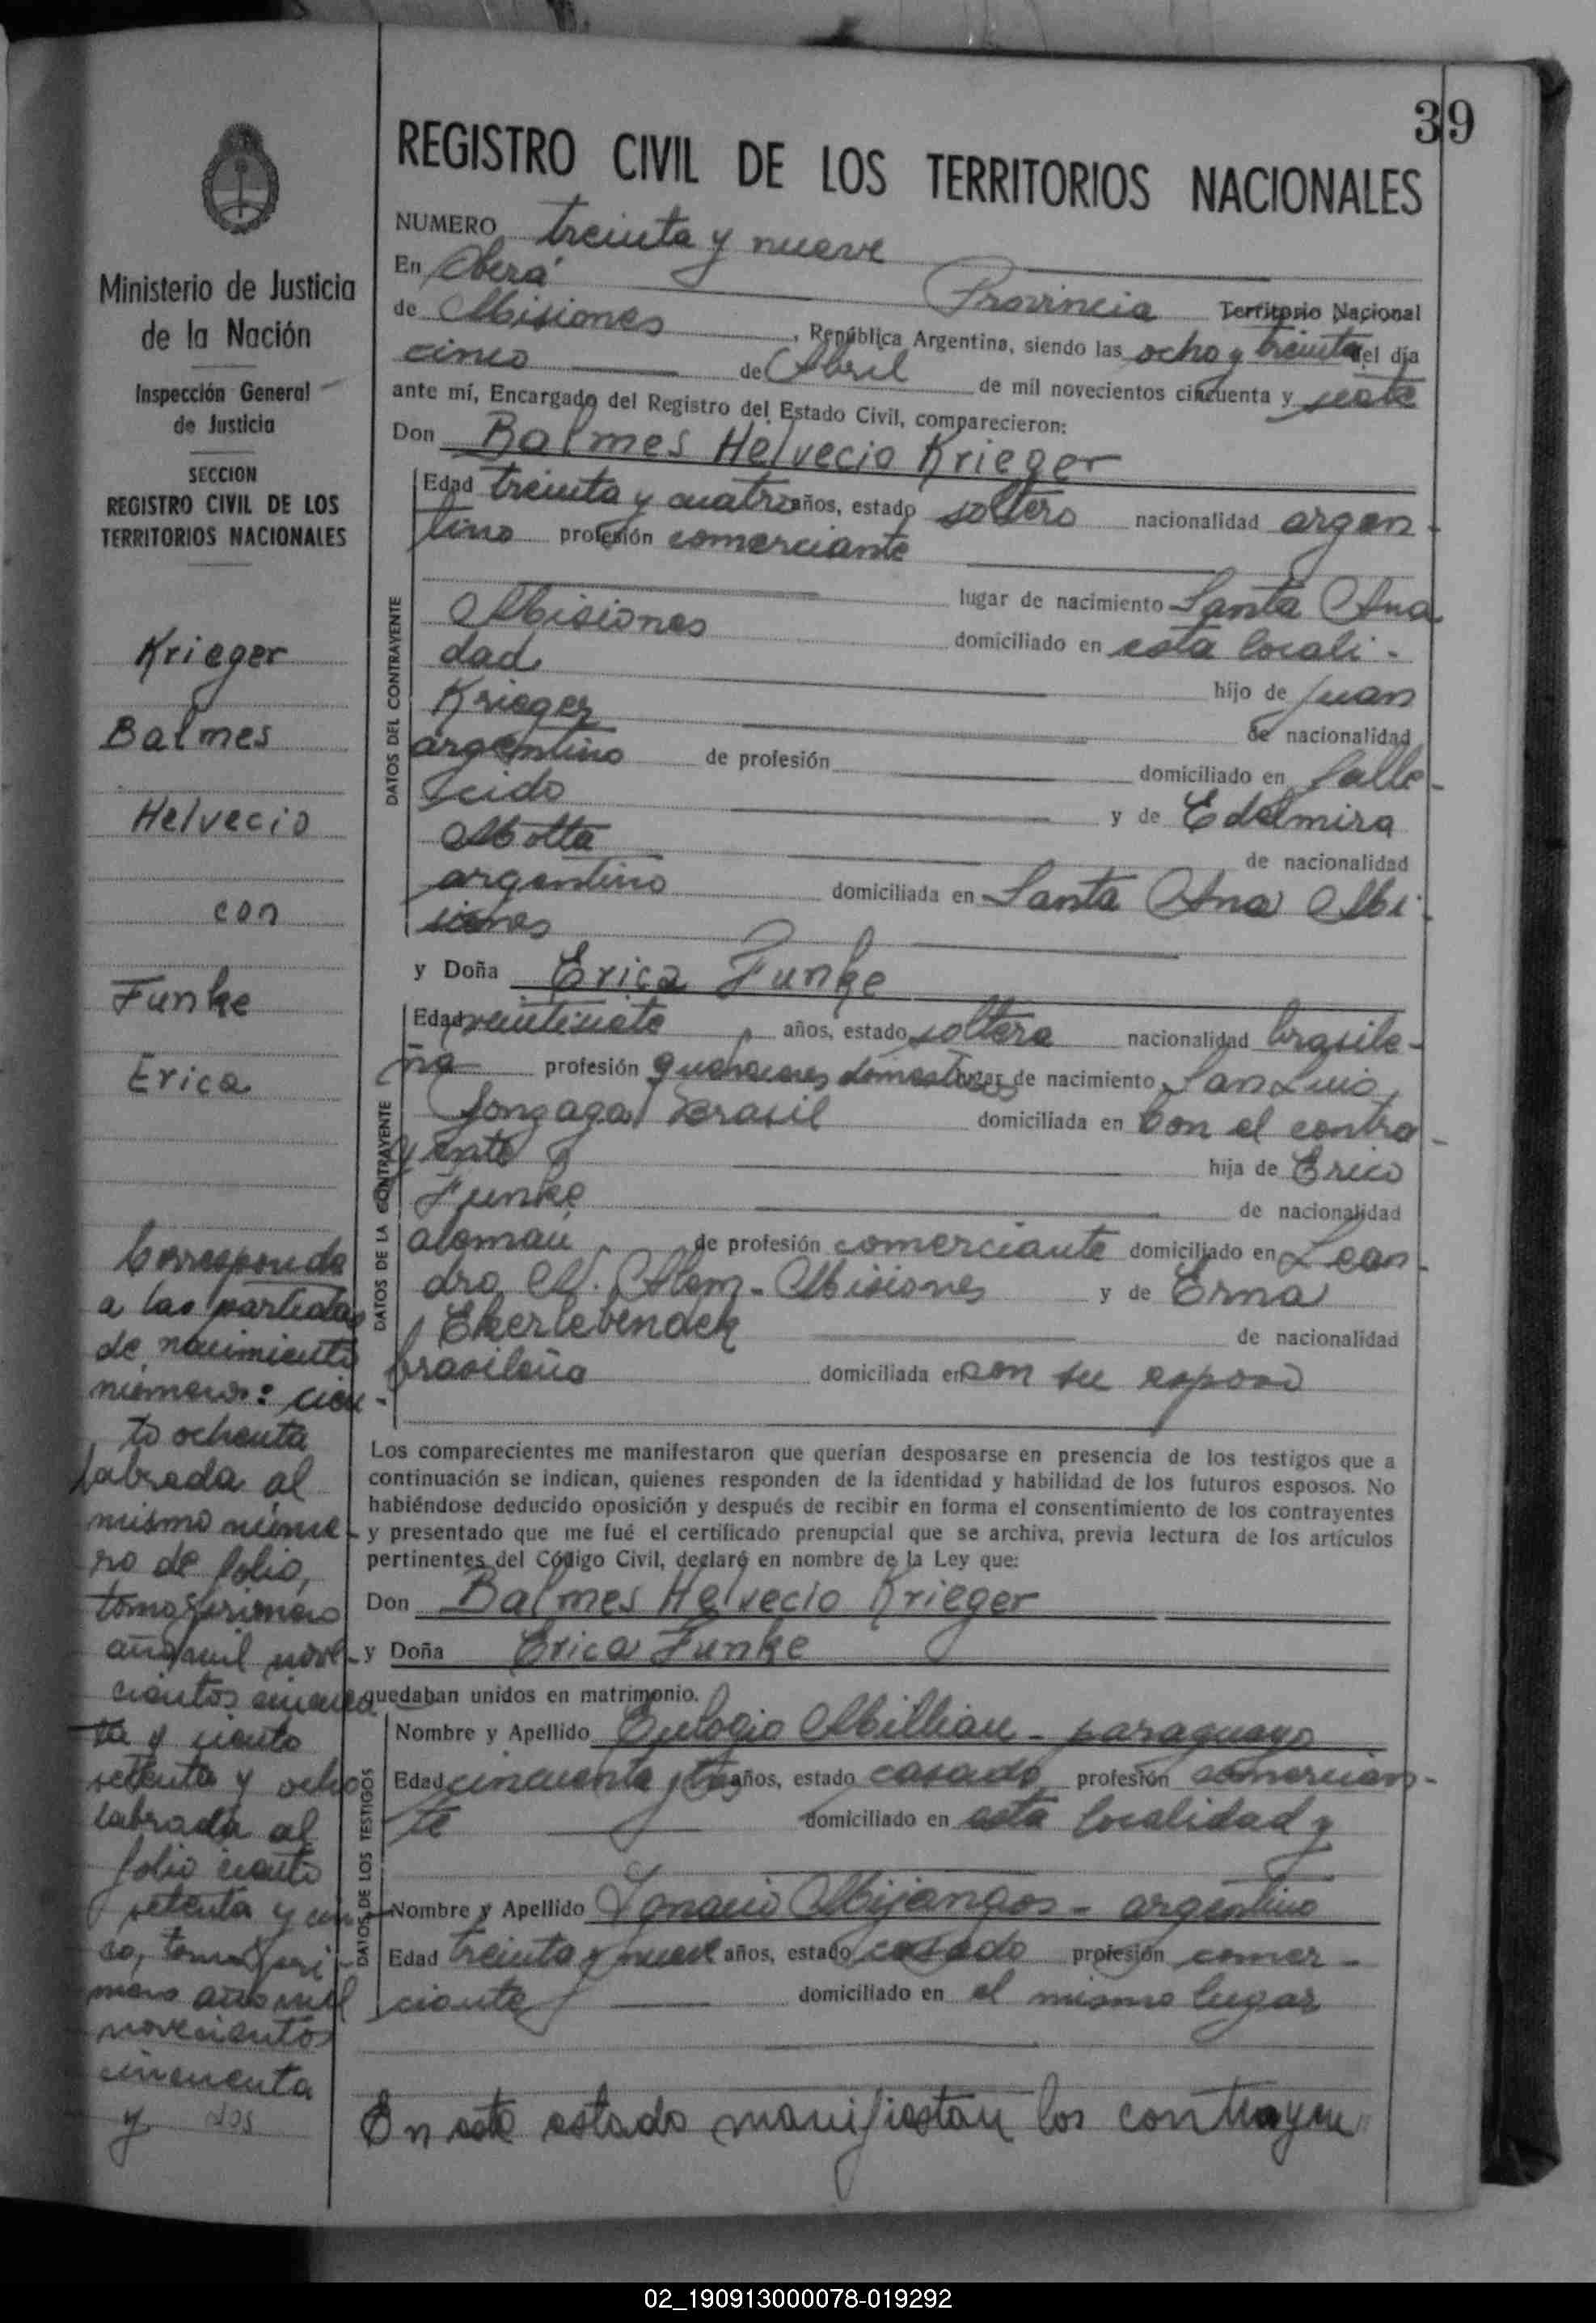 39
REGISTRO CIVIL DE LOS TERRITORIOS NACIONALES
NUMERO treinta y nueve
En Oberá Provincia Territorio Nacional
de Misiones, República Argentina, siendo las ocho y treinta del día
cinco de Abril de mil novecientos cincuenta y siete
ante mí, Encargado del Registro del Estado Civil, comparecieron:
Don Balmes Helvecio Krieger
DATOS DEL CONTRAYENTE
Edad treinta y cuatro años, estado soltero nacionalidad argen-
tino profesión comerciante
lugar de nacimiento Santa Ana
Misiones domiciliado en esta locali-
dad hijo de Juan
Krieger de nacionalidad
argentino de profesión domiciliado en falle-
cido y de Edelmira
Motta de nacionalidad
argentino domiciliada en Santa Ana Mi-
siones
y Doña Erica Funke
DATOS DE LA CONTRAYENTE
Edad veintisiete años, estado soltera nacionalidad brasile-
ña profesión quehaceres domesticos lugar de nacimiento San Luis
Gonzaga Brasil domiciliada en Con el contra-
yente hija de Erico
Funke de nacionalidad
aleman de profesión comerciante domiciliado en Lean-
dro N. Alem - Misiones y de Erna
de nacionalidad
brasileña domiciliada en con su esposo
Los comparecientes me manifestaron que querían desposarse en presencia de los testigos que a
continuación se indican, quienes responden de la identidad y habilidad de los futuros esposos. No
habiéndose deducido oposición y después de recibir en forma el consentimiento de los contrayentes
y presentado que me fué el certificado prenupcial que se archiva, previa lectura de los artículos
pertinentes del Código Civil, declaré en nombre de la Ley que:
Don Balmes Helvecio Krieger
y Doña Erica Funke
quedaban unidos en matrimonio.
DATOS DE LOS TESTIGOS
Nombre y Apellido Eulogio Millian - paraguayo
Edad cincuenta y tres años, estado casado profesión comercian-
te domiciliado en esta localidad y
Nombre y Apellido Ignacio Mijangos - argentino
Edad treinta y nueve años, estado casado profesión comer-
ciante domiciliado en el mismo lugar
En este estado manifiestan los contrayen
Ministerio de Justicia
de la Nación
Inspección General
de Justicia
SECCION
REGISTRO CIVIL DE LOS
TERRITORIOS NACIONALES
Krieger
Balmes
Helvecio
con
Funke
Erica
Corresponde
a las partidas
de nacimiento
números: cien-
to ochenta
labrada al
mismo núme-
ro de folio,
tomo primero
año mil nove-
cientos cincuen
ta y ciento
setenta y ocho
labrada al
folio ciento
setenta y cin-
co, tomo pri-
mero año mil
novecientos
cincuenta
y dos
02_190913000078-019292